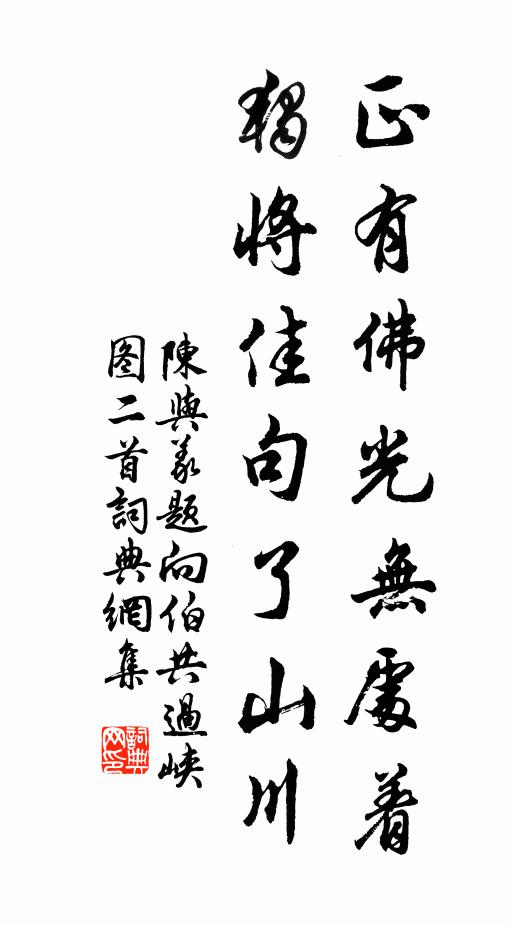 正有佛光無處着
獨將佳句了山川
陳與義題向伯共過峽
图二首詞典網集
詞典网印